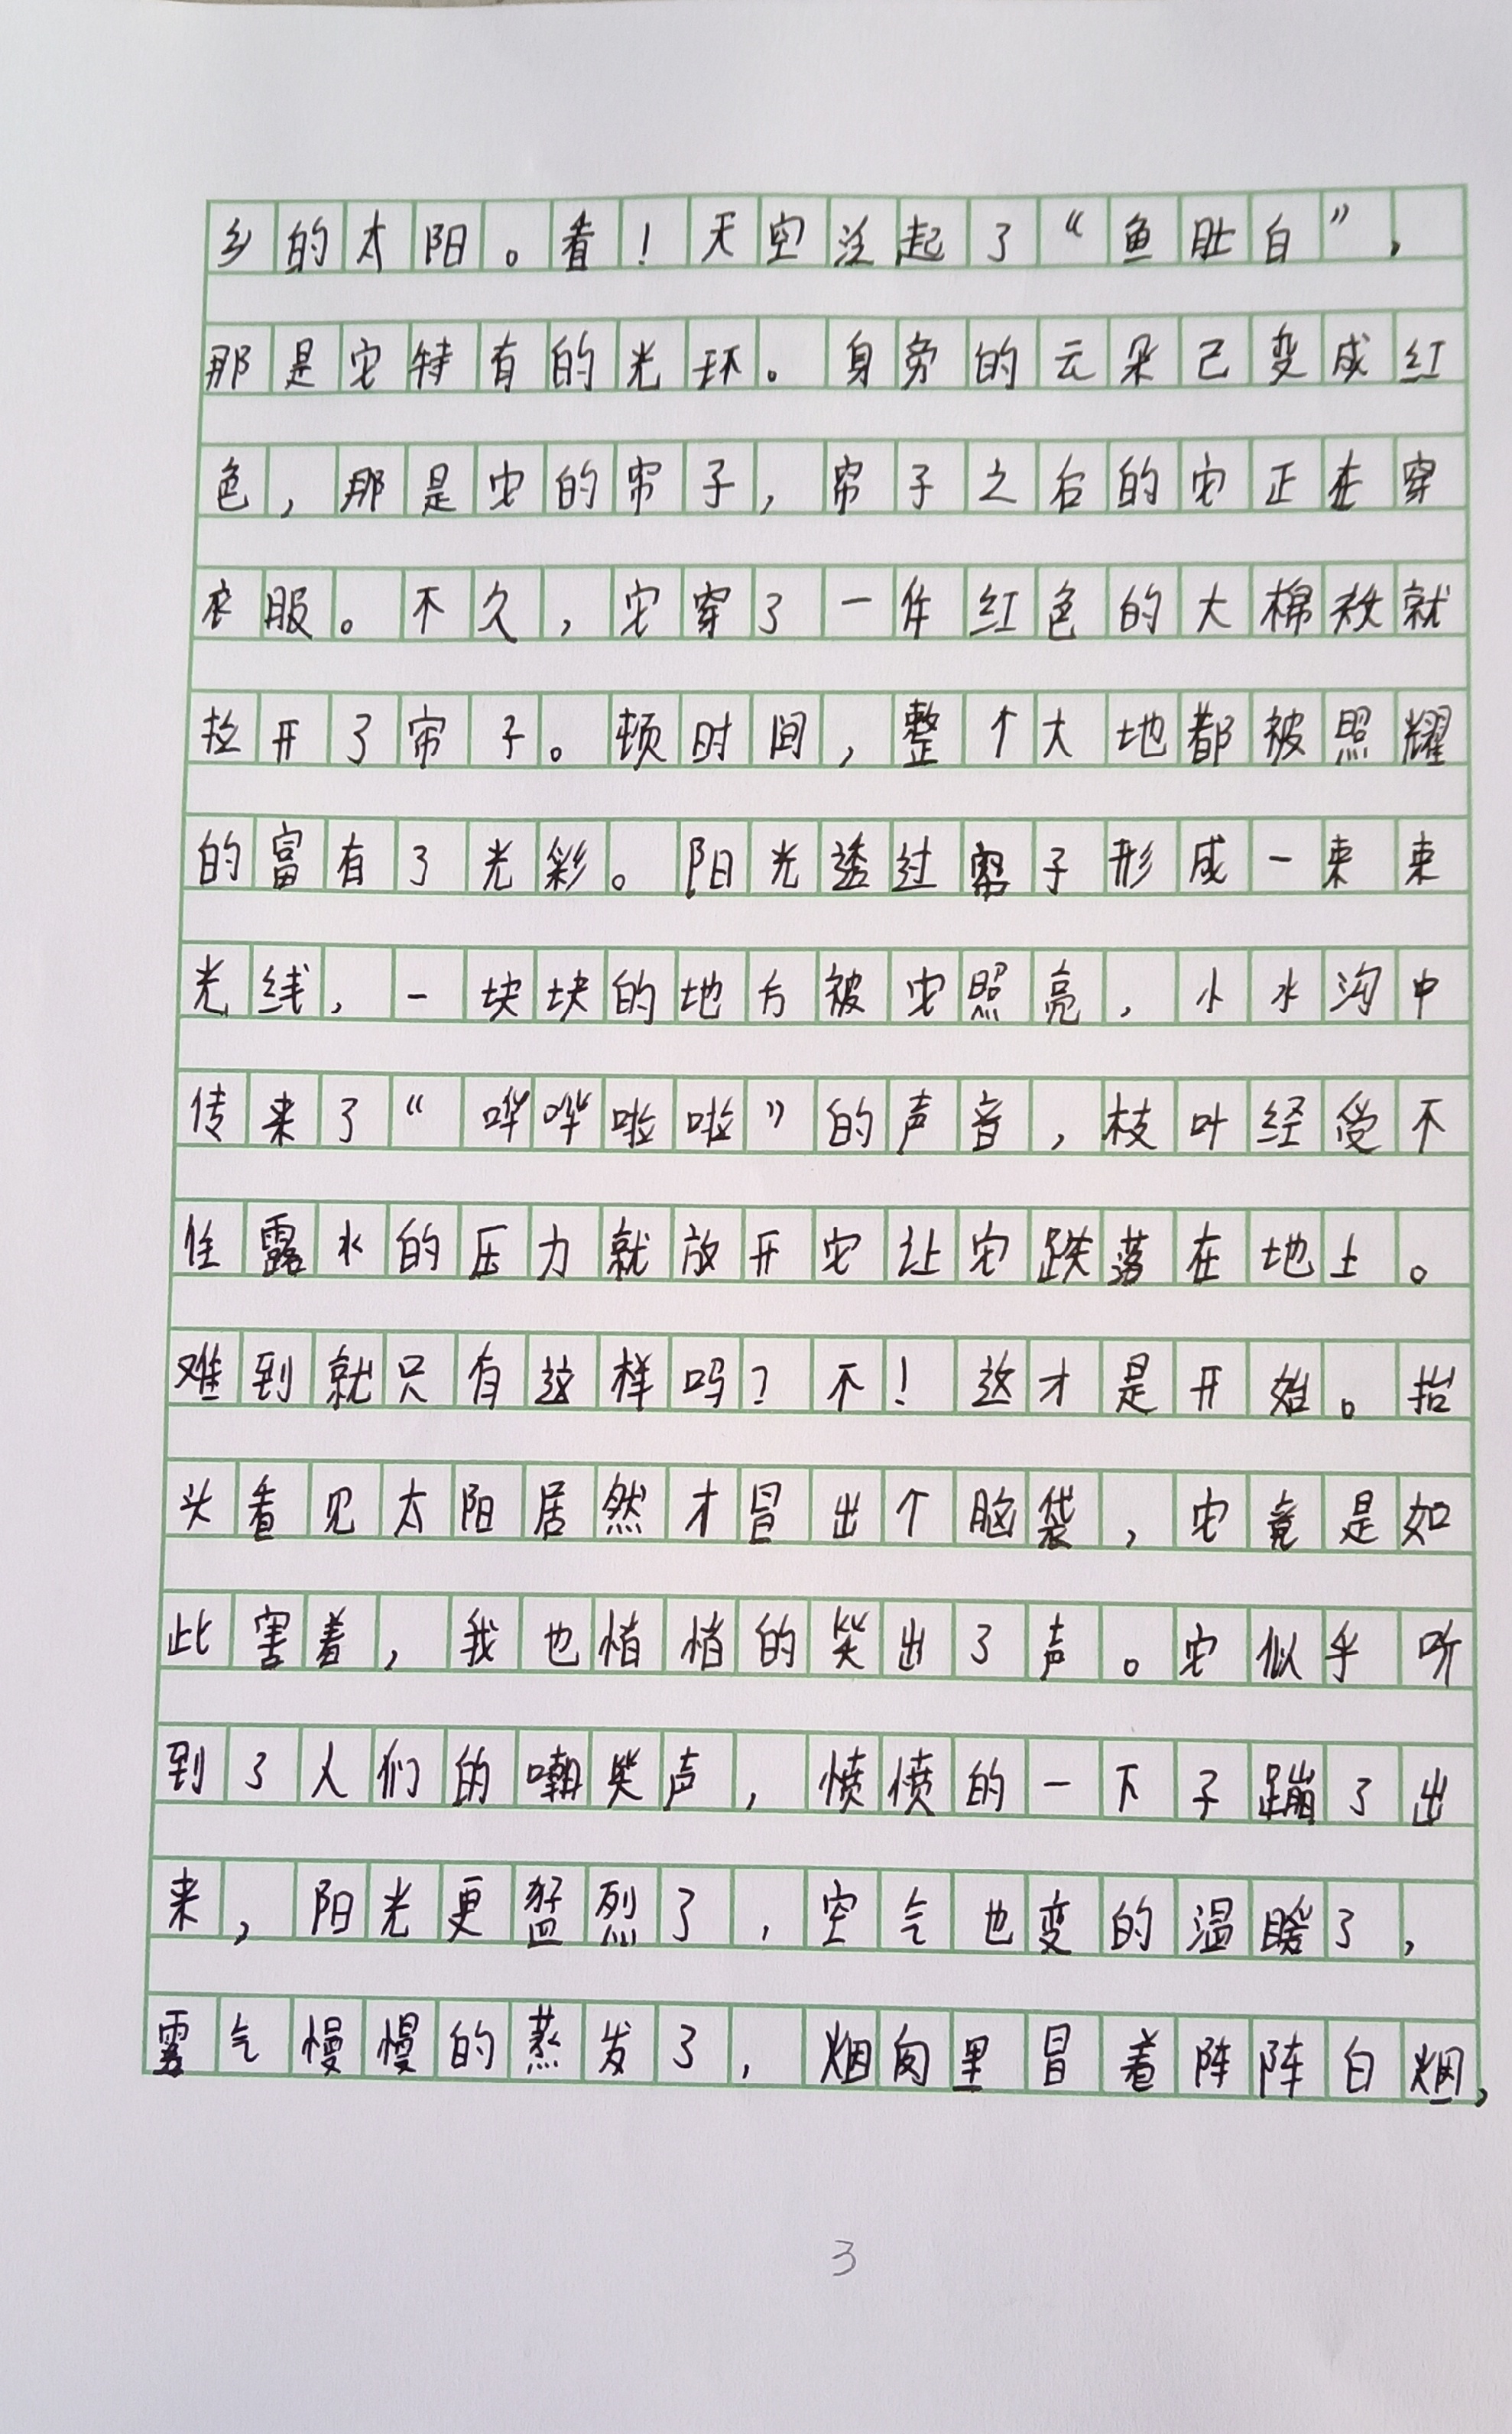 乡的太阳。看！天空泛起了“鱼肚白”，
那是它特有的光环。身旁的云朵已变成红
色，那是它的帘子，帘子之后的它正在穿
衣服。不久，它穿了一件红色的大棉袄就
拉开了帘子。顿时间，整个大地都被照耀
的富有了光彩。阳光透过帘子形成一束束
光线，一块块的地方被它照亮，小水沟中
传来了“哗哗啦啦”的声音，枝叶经受不
住露水的压力就放开它让它跌落在地上。
难到就只有这样吗？不！这才是开始。抬
头看见太阳居然才冒出个脑袋，它竟是如
此害羞，我也悄悄的笑出了声。它似乎听
到了人们的嘲笑声，愤愤的一下子蹦了出
来，阳光更猛烈了，空气也变的温暖了，
雾气慢慢的蒸发了，烟囱里冒着阵阵白烟，
3